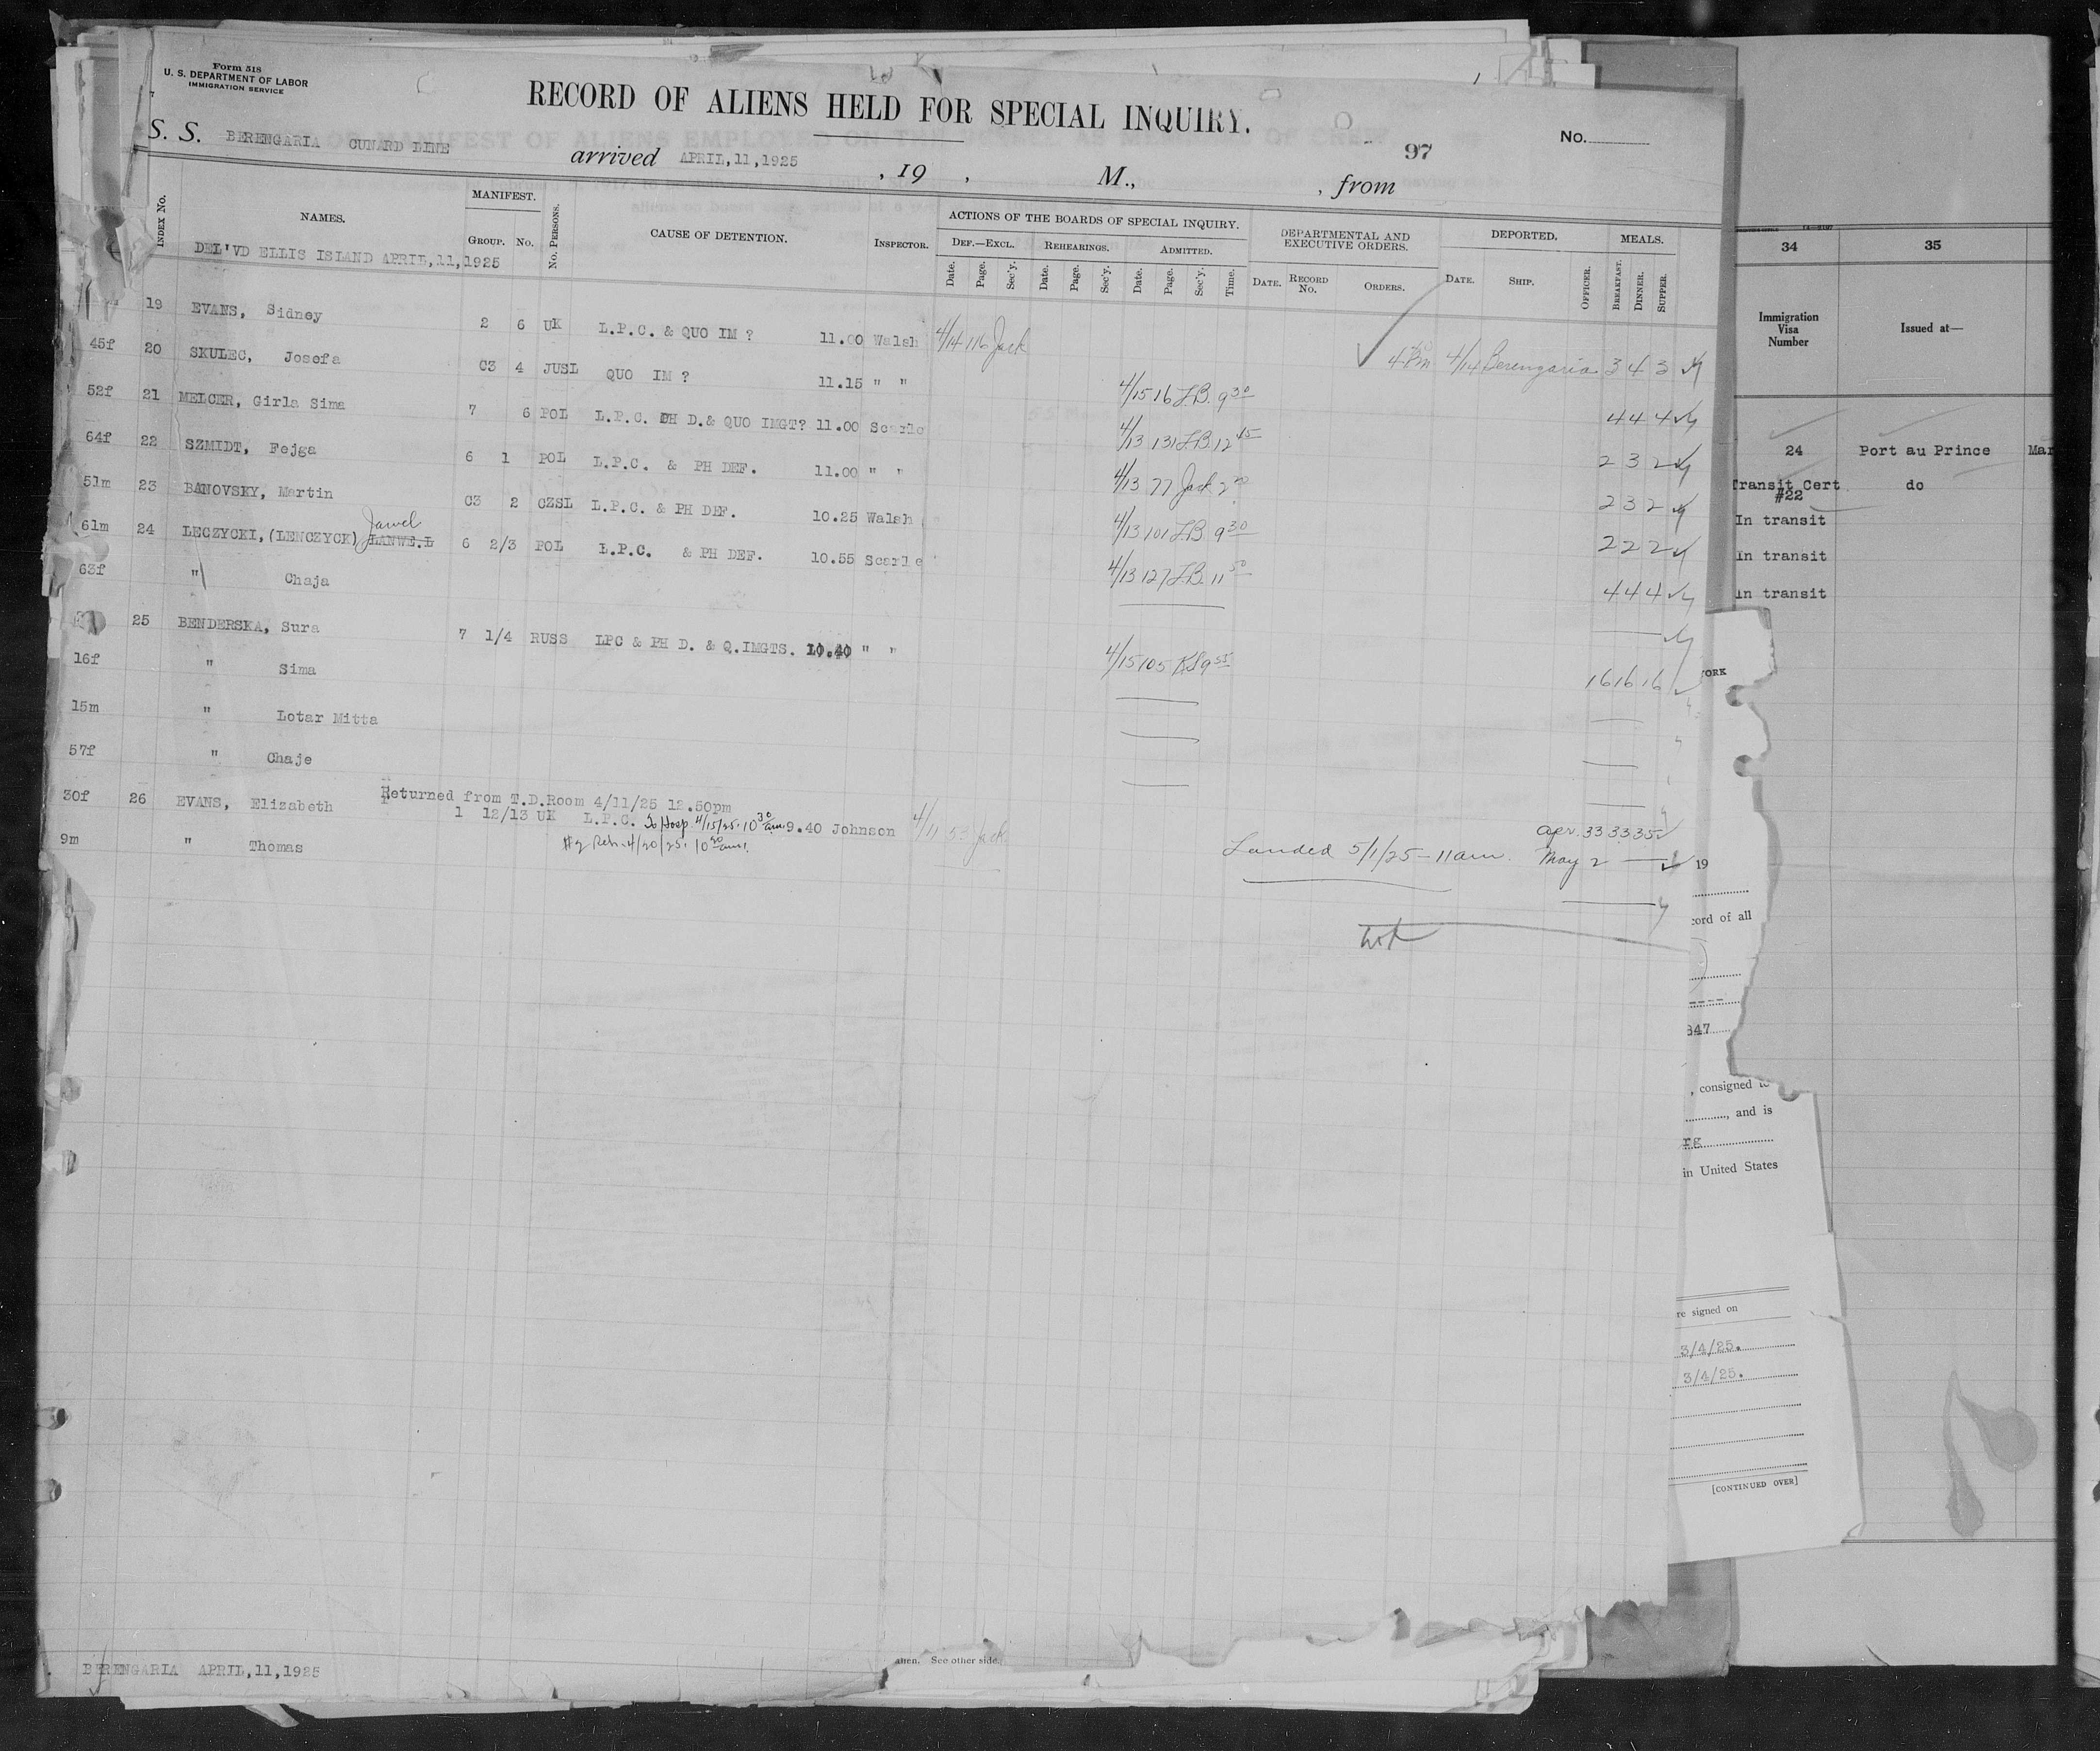 Form 518
U. S. DEPARTMENT OF LABOR
IMMIGRATION SERVICE
RECORD OF ALIENS HELD FOR SPECIAL INQUIRY.
No.
S. S. BERENGARIA CUNARD LINE arrived APRIL,11,1925 , 19 , M., , from
97
INDEX No. NAMES. MANIFEST. GROUP. No. No. PERSONS. CAUSE OF DETENTION. INSPECTOR.
ACTIONS OF THE BOARDS OF SPECIAL INQUIRY. DEF.—EXCL. REHEARINGS. ADMITTED.
Date. Page. Sec'y. Date. Page. Sec'y. Date. Page. Sec'y. Time.
DEPARTMENTAL AND EXECUTIVE ORDERS. DATE. RECORD No. ORDERS.
DEPORTED. DATE. SHIP. OFFICER. MEALS. BREAKFAST. DINNER. SUPPER.
DEL'VD ELLIS ISLAND APRIL,11,1925
19 EVANS, Sidney 2 6 UK L.P.C. & QUO IM ? 11.00 Walsh 4/14 116 Jack 4 Pm 4/14 Berengaria 3 4 3
45f 20 SKULEC, Josefa C3 4 JUSL QUO IM ? 11.15 " " 4/15 16 L.B. 9 30 4 4 4
52f 21 MELCER, Girla Sima 7 6 POL L.P.C. PH D.& QUO IMGT? 11.00 Scarle 4/13 131 L.B. 12 45 2 3 2
64f 22 SZMIDT, Fejga 6 1 POL L.P.C. & PH DEF. 11.00 " " 4/13 77 Jack 2 20 2 3 2
51m 23 BANOVSKY, Martin C3 2 CZSL L.P.C. & PH DEF. 10.25 Walsh 4/13 101 L.B. 9 30 2 2 2
61m 24 LECZYCKI,(LENCZYCK) LANWE.L Jawel 6 2/3 POL L.P.C. & PH DEF. 10.55 Scarle 4/13 127 L.B. 11 50 4 4 4
63f " Chaja
25 BENDERSKA, Sura 7 1/4 RUSS LPC & PH D. & Q.IMGTS. 10.40 " " 4/15 105 9 55 16 16 16
16f " Sima
15m " Lotar Mitta
57f " Chaje
Returned from T.D.Room 4/11/25 12.50pm
30f 26 EVANS, Elizabeth 1 12/13 UK L.P.C. To Hosp 4/15/25. 10 30 am. 9.40 Johnson 4/11 53 Jack Apr. 33 33 35
#2 Reh. 4/20/25. 10 20 am.
9m " Thomas Landed 5/1/25 - 11am. May 2
BERENGARIA APRIL,11,1925
alien. See other side.
34 35
Immigration Visa Number
Issued at—
24 Port au Prince Mar
Transit Cert #22 do
In transit
In transit
In transit
YORK
19
cord of all
847
, consigned to
, and is
rg
in United States
re signed on
3/4/25.
3/4/25.
[CONTINUED OVER]